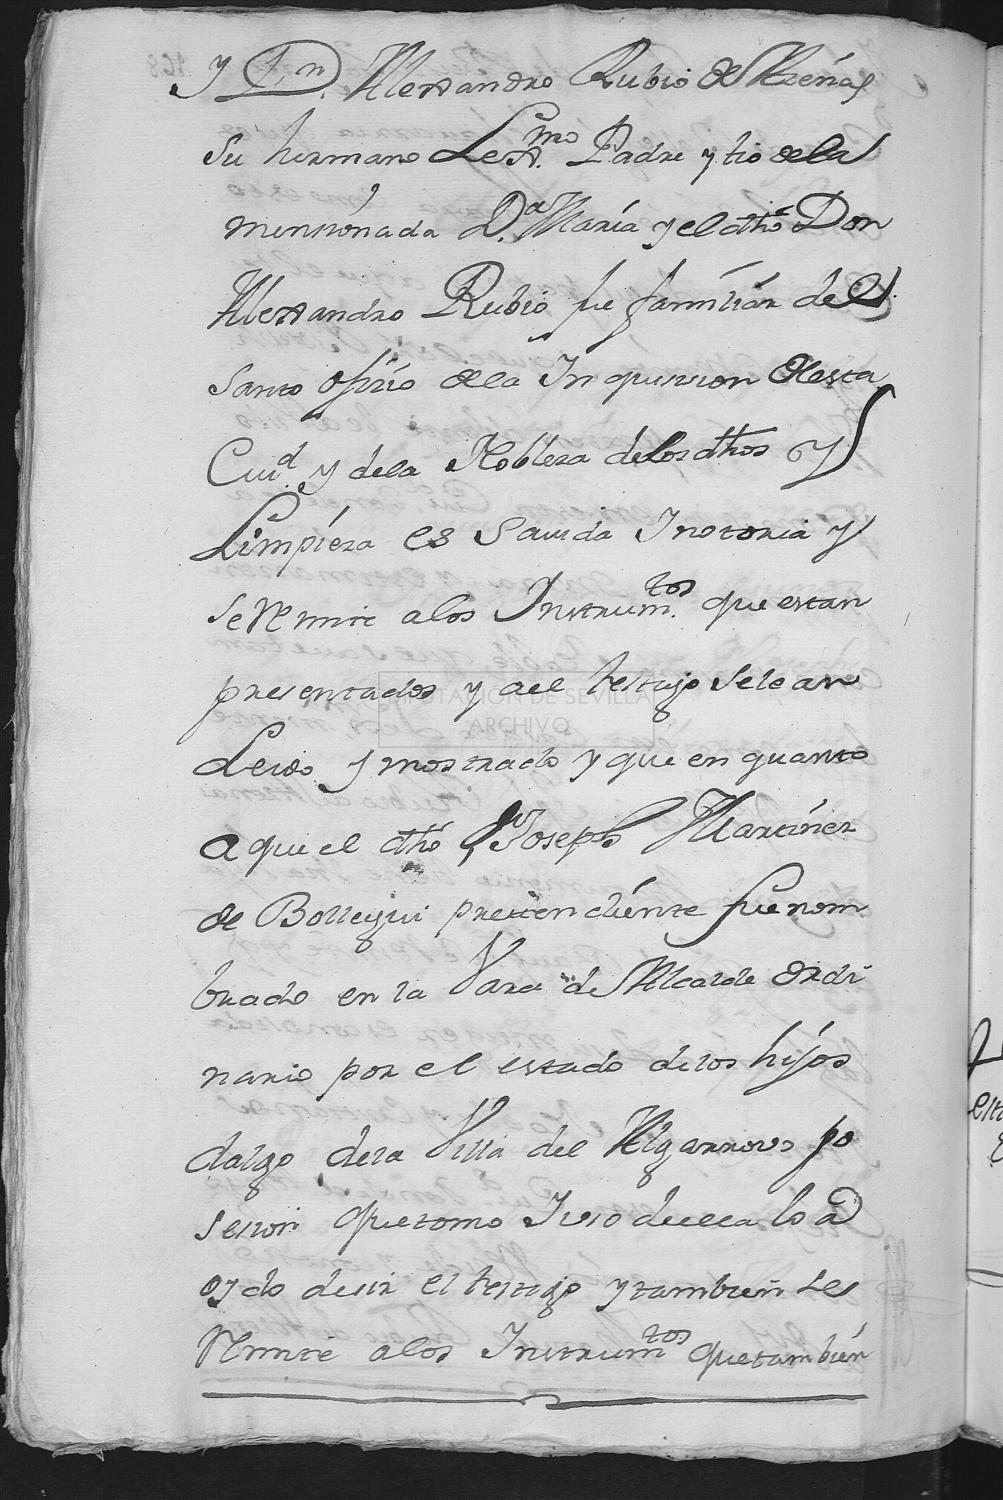 y Dn. Alexandro Rubio de Arenas
su hermano Lexmo. Padre y tio dela
mensionada D.a Maria y el dho Don
Alexandro Rubio fue familiar del
Santo ofizio dela Inquision desta
Ciud. y dela Nobleza delos dhos y
Limpieza es savida Inotoria y
se Remite alos Instrumtos. que estan
presentados y ael testigo selean
Leido y mostrado y que en quanto
aque el dho Joseph Martinez
de Bollegui prettendiente fue nom
brado en la Vara de Alcalde ordi
nario por el estado delos hijos
dalgo dela Villa del Algarrovo po
sesion que tomo Iuso deella lo a
oydo desir el testigo y tambien se
Remite alos Instrumtos que tambien
DIPUTACION DE SEVILLA
ARCHIVO